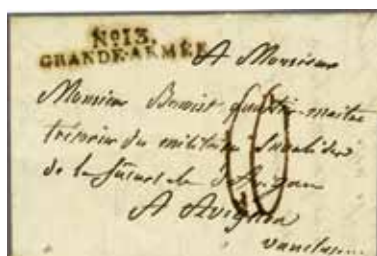 No 13.
GRANDE-ARMÉE
A Monsieur
Monsieur Benoist quartier-maitre
trésorier du militaire Invalides
de la de d'Avignon
A Avignon
Vaucluse